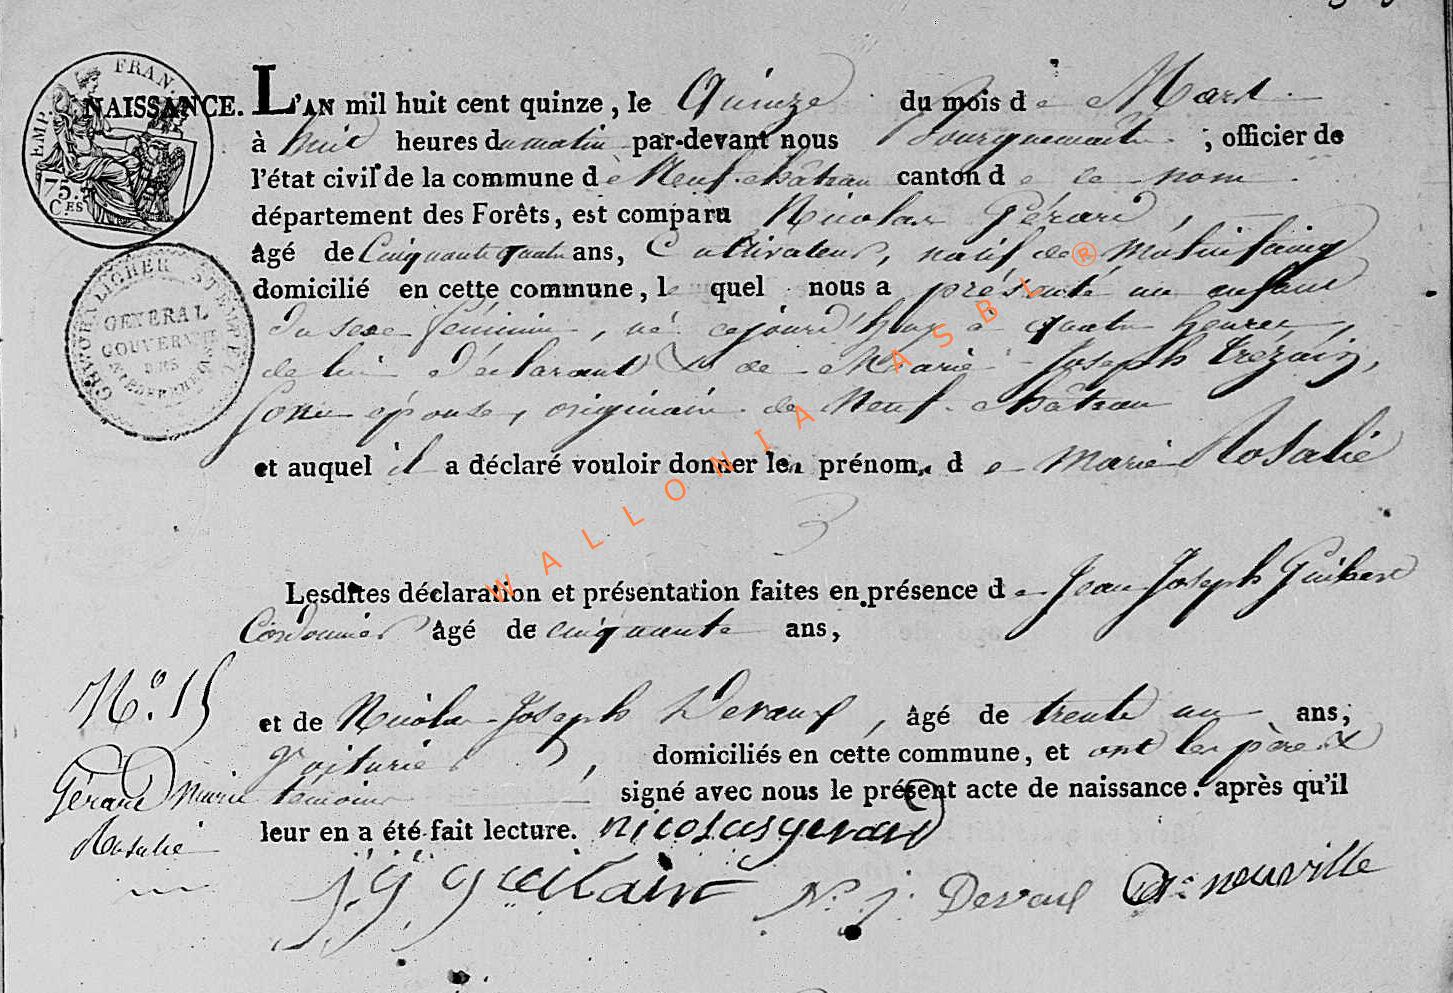 EMP. FRAN.
75.
C.ES
GENERAL
GOUVERNEMT
NAISSANCE. L'AN mil huit cent quinze, le Quinze du mois de Mars
à huit heures du matin par-devant nous Bourguemaitre ; officier de
l'état civil de la commune de Neuf-château canton de ce nom
département des Forêts, est comparu Nicolas Gérard,
âgé de Cinquante quatre ans, Cultivateur, natif de
domicilié en cette commune, lequel nous a présenté un enfant
du sexe féminin, né cejourd'huy à quatre heures,
de lui Déclarant & de Marie-Joseph Trézain,
sonne épouse, originaire de Neuf-château
et auquel il a déclaré vouloir donner les prénoms de Marie Rosalie
Lesdites déclaration et présentation faites en présence de Jean Joseph
Cordonnier âgé de cinquante ans,
N.o 15
et de Nicolas-Joseph Devaux, âgé de trente un ans,
Voiturier, domiciliés en cette commune, et ont les père &
Gérard Marie
Rosalie
témoins signé avec nous le présent acte de naissance. après qu'il
leur en a été fait lecture. nicolas gerard
N. j. Devaux neuville
WALLONIA ASBL ®